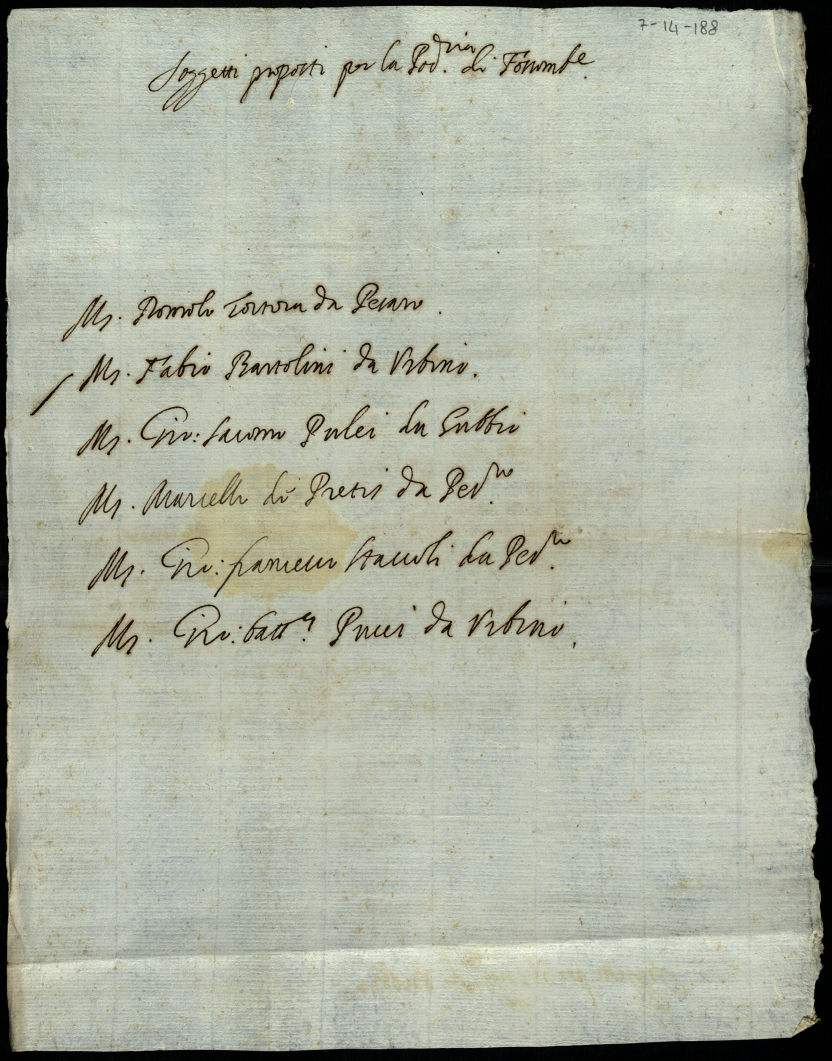 7-14-188
Soggetti proposti per la Pod.ria di Fossombe.
Ms. Romolo Tortora da Pesaro.
Ms. Fabio Bartolini da Urbino.
Ms. Gio: Jacomo Pulci da Gubbio
Ms. Marcello de Pretis da Ped.mo
Ms. Gio: francesco Staccoli da Ped.mo
Ms. Gio: batt.a Pucci da Urbino.